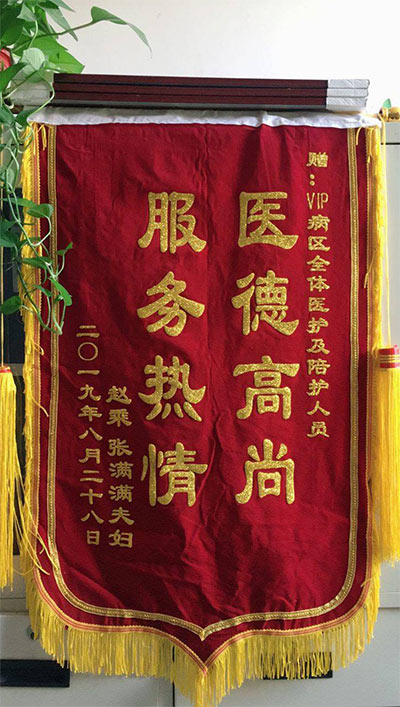 赠：VIP病区全体医护及陪护人员
医德高尚
服务热情
赵乘 张满满夫妇
二〇一九年八月二十八日